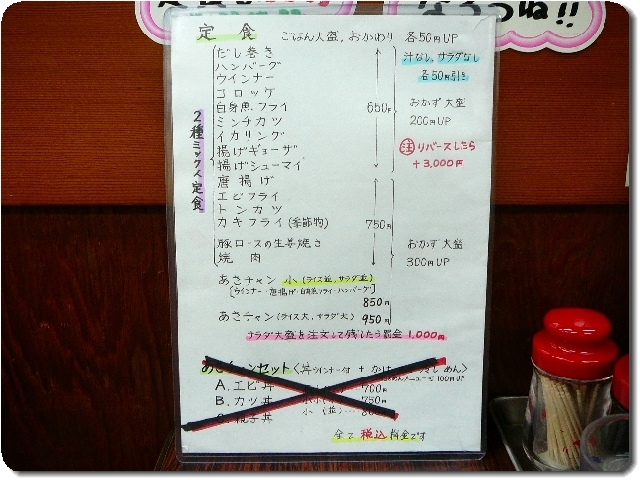 なろうね!!
定食 ごはん大盛,おかわり 各50円UP
だし巻き
ハンバーグ
ウインナー
コロッケ
白身魚フライ
ミンチカツ
イカリング
揚げギョーザ
揚げシューマイ
650円
汁なし,サラダなし
各50円引き
おかず大盛
200円UP
注 リバースしたら
+3,000円
2種ミックス定食
唐揚げ
エビフライ
トンカツ
カキフライ(季節物)
豚ロースの生姜焼き
焼肉
750円
おかず大盛
300円UP
あさチャン 小(ライス並,サラダ並)
[ウインナー・唐揚げ・白身魚フライ・ハンバーグ]
850円
あさチャン(ライス大,サラダ大) 950円
サラダ大盛を注文して残したら罰金1,000円
セット〈丼ウインナー付 +
A.エビ丼 700円
B.カツ丼 750円
親子丼 小(並)
100円UP
全て税込料金です